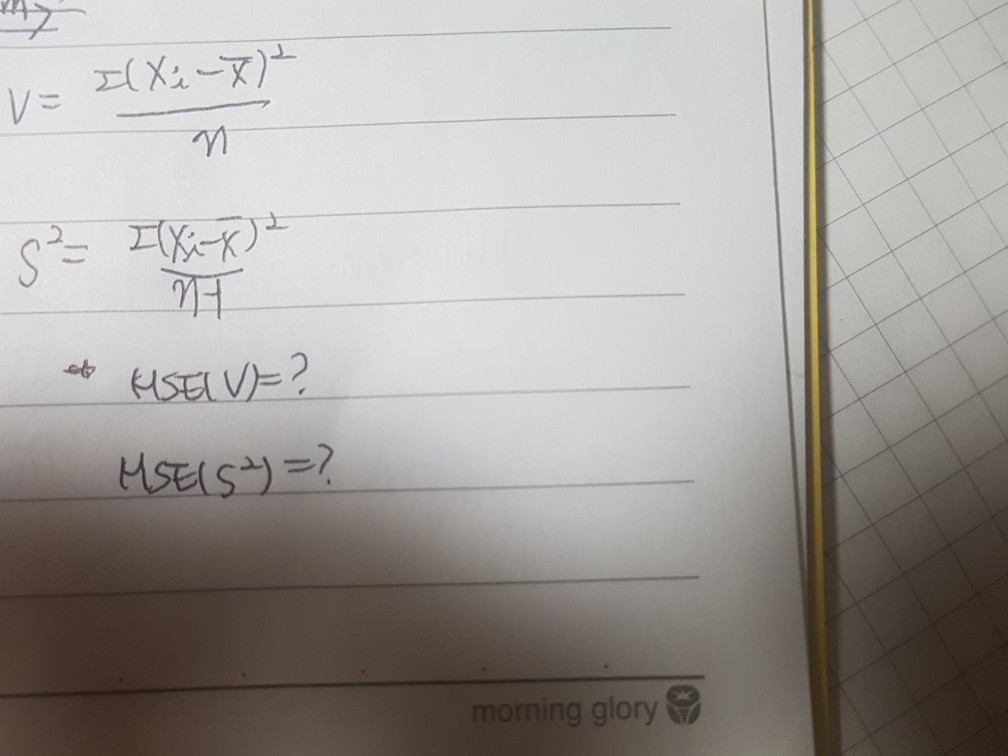 V = Σ(Xi - X̅)² / n
S² = Σ(Xi - X̅)² / n-1
MSE(V) = ?
MSE(S²) = ?
morning glory